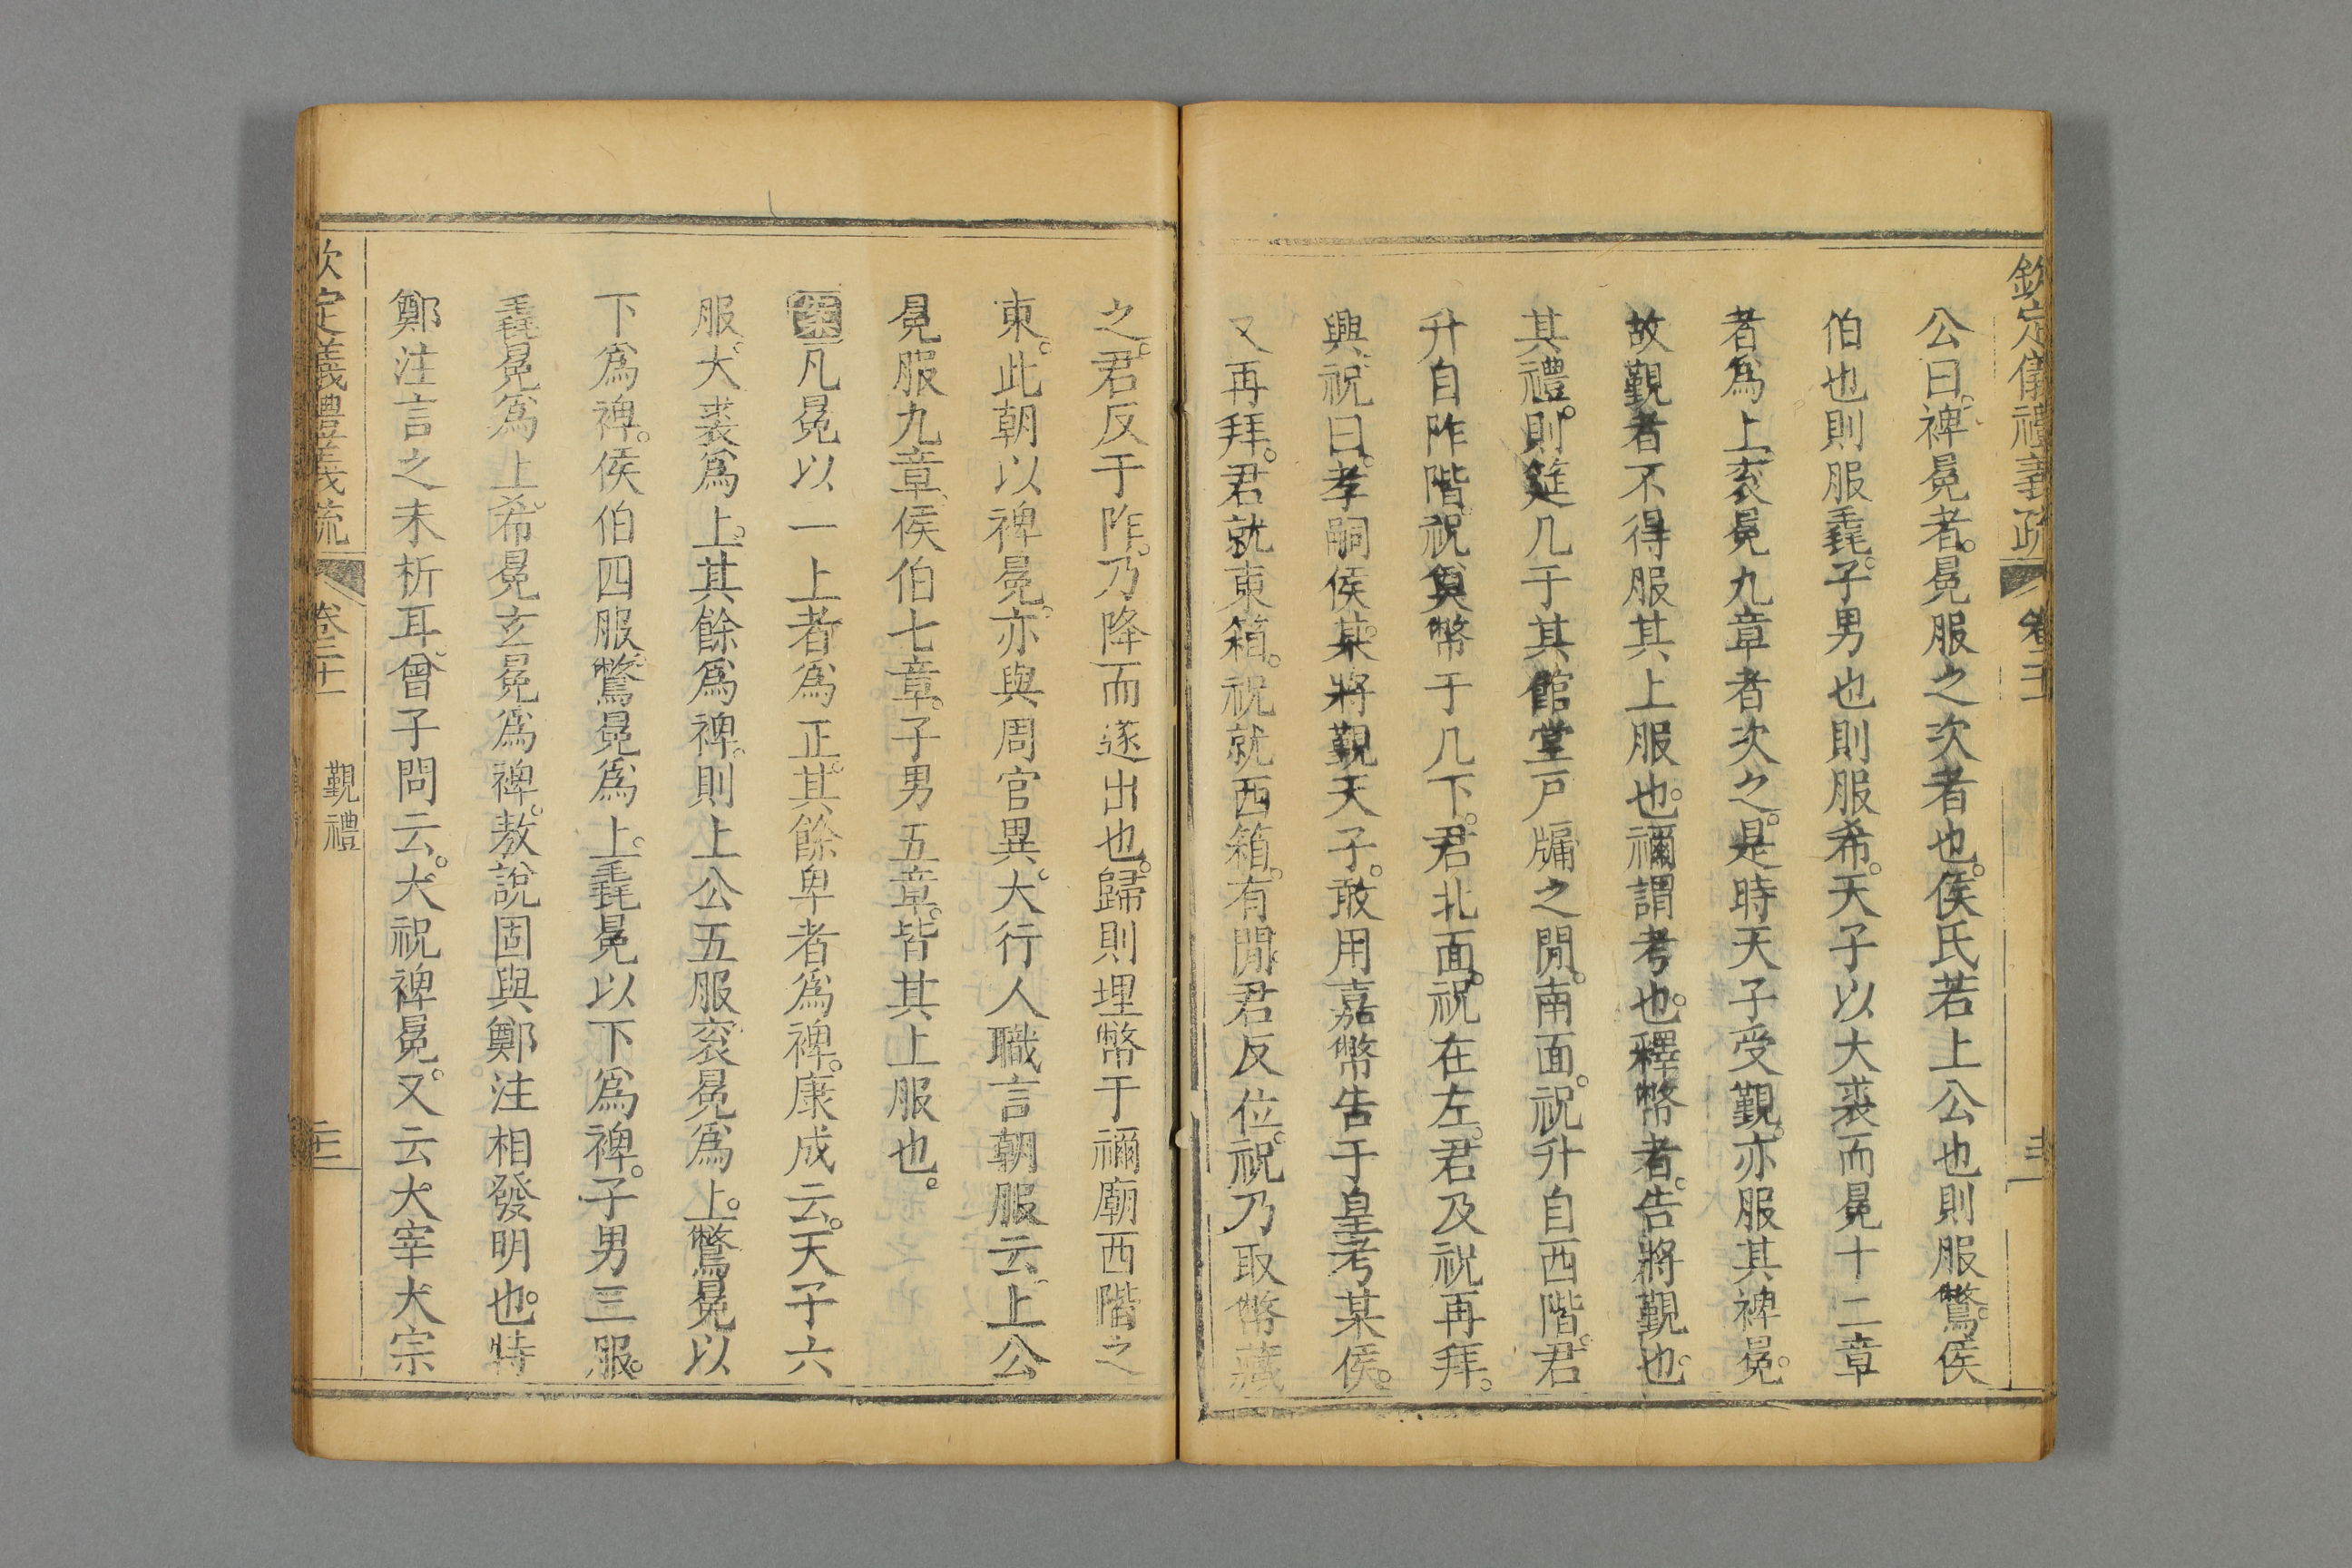 欽定儀禮義疏 卷三十一
公曰。裨冕者。冕服之次者也。侯氏若上公也則服鷩。侯
伯也則服毳。子男也則服希。天子以大裘而冕十二章
者爲上。衮冕九章者次之。是時天子受覲。亦服其裨冕。
故覲者不得服其上服也。禰謂考也。釋幣者。告將覲也。
其禮。則筵几于其館堂戸牖之閒。南面。祝升自西階。君
升自阼階。祝奠幣于几下。君北面。祝在左。君及祝再拜。
興。祝曰。孝嗣侯某。將覲天子。敢用嘉幣告于皇考某侯。
又再拜。君就東箱。祝就西箱。有閒。君反位。祝乃取幣藏
之。君反于阼。乃降而遂出也。歸則埋幣于禰廟西階之
東。此朝以裨冕。亦與周官異。大行人職言朝服云。上公
冕服九章。侯伯七章。子男五章。皆其上服也。
案凡冕以一上者爲正。其餘卑者爲裨。康成云。天子六
服。大裘爲上。其餘爲裨。則上公五服衮冕爲上。鷩冕以
下爲裨。侯伯四服。鷩冕爲上。毳冕以下爲裨。子男三服。
毳冕爲上。希冕玄冕爲裨。敖說固與鄭注相發明也。特
鄭注言之未析耳。曾子問云。大祝裨冕。又云大宰大宗
欽定義禮義疏 卷三十一 覲禮 二十二